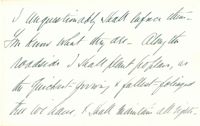 I unquestionably shall enforce them.
You know what they are – Along the
roadside I shall plant poplars, as
the quickest growing & fullest foliaged
tree we have, & shall maintain all rights.